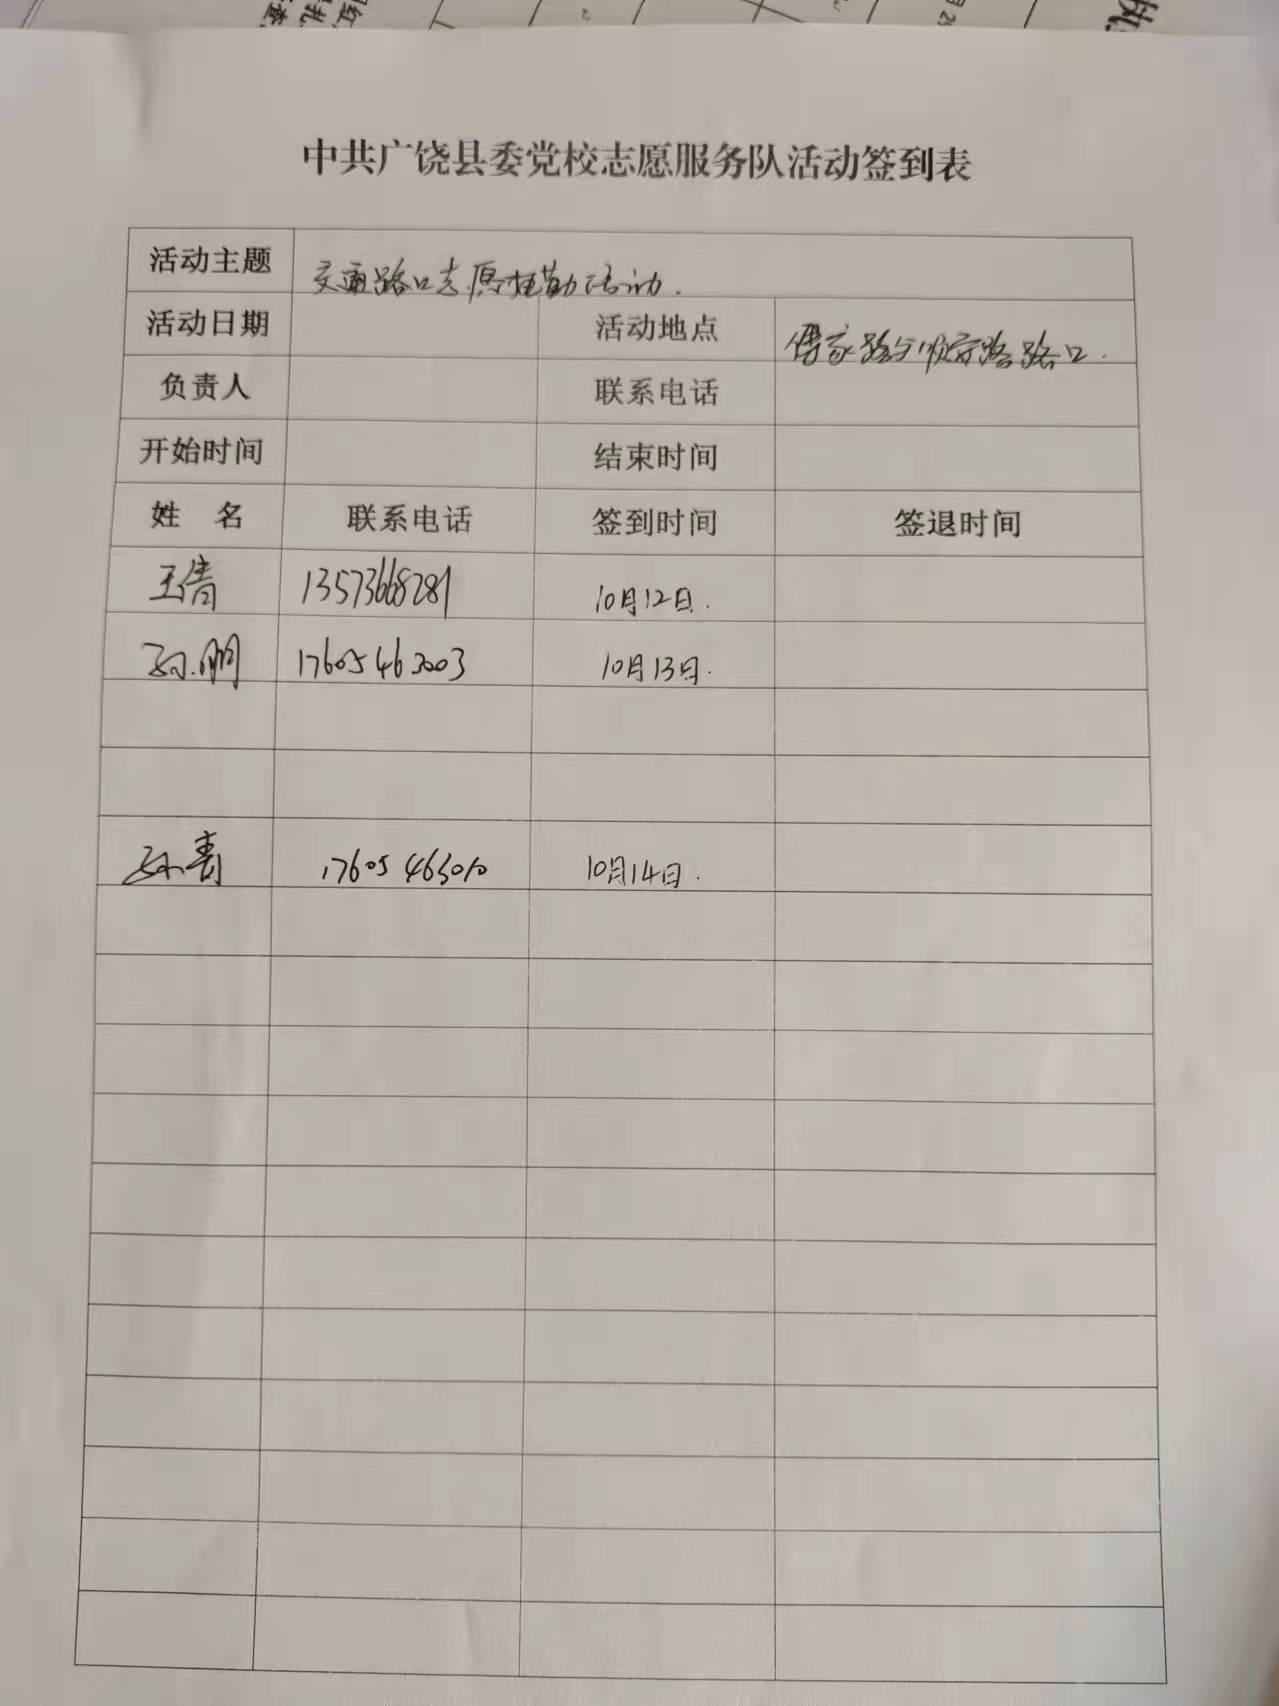 中共广饶县委党校志愿服务队活动签到表
活动主题 交通路口志愿执勤活动.
活动日期 活动地点 路口.
负责人 联系电话
开始时间 结束时间
姓 名 联系电话 签到时间 签退时间
王倩 13573668281 10月12日.
孙明 17605463003 10月13日.
孙青 17605463010 10月14日.